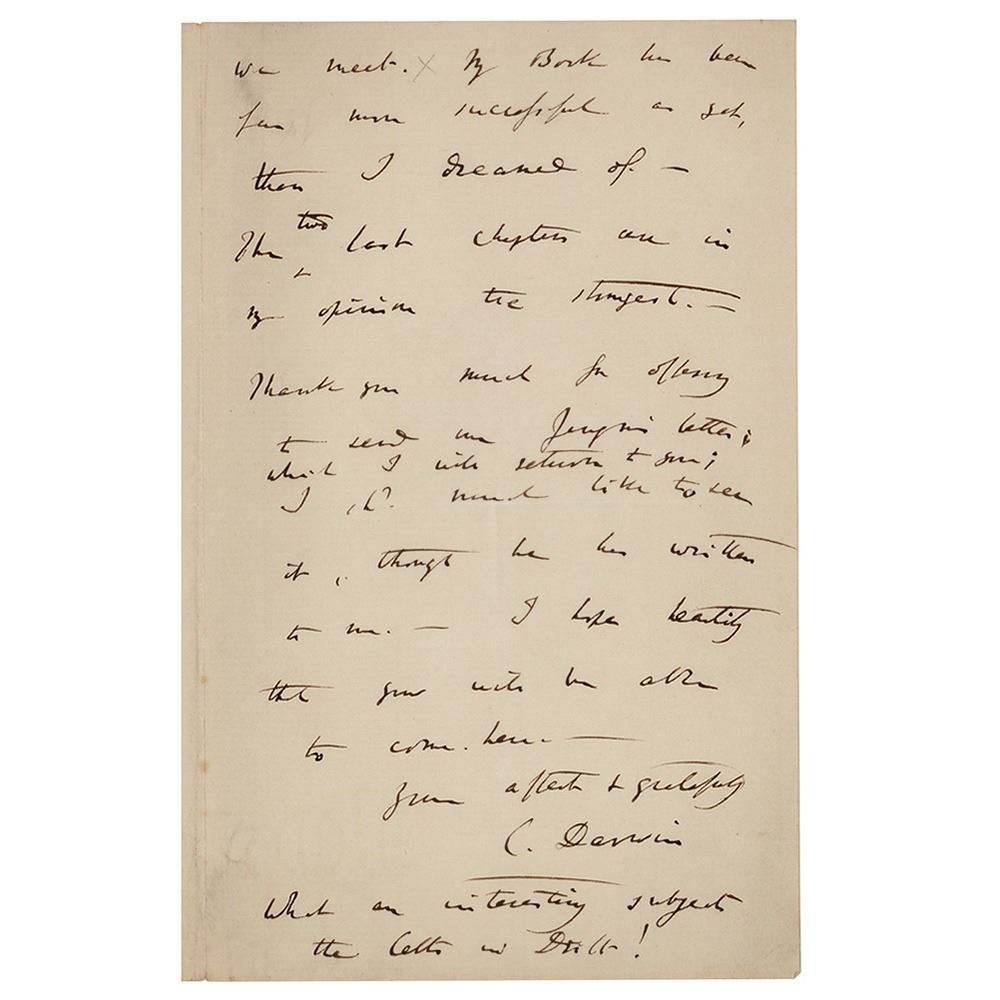 we meet. x My Book has been
far more successful as yet,
than I dreamed of. —
The two last chapters are in
my opinion the strongest. —
Thank you much for offering
to send me letter;
which I will return to you;
I shd. much like to see
it, though he has written
to me. — I hope heartily
that you will be able
to come here. —
Your affect & gratefully
C. Darwin
What an interesting subject
the Celts in Drift!